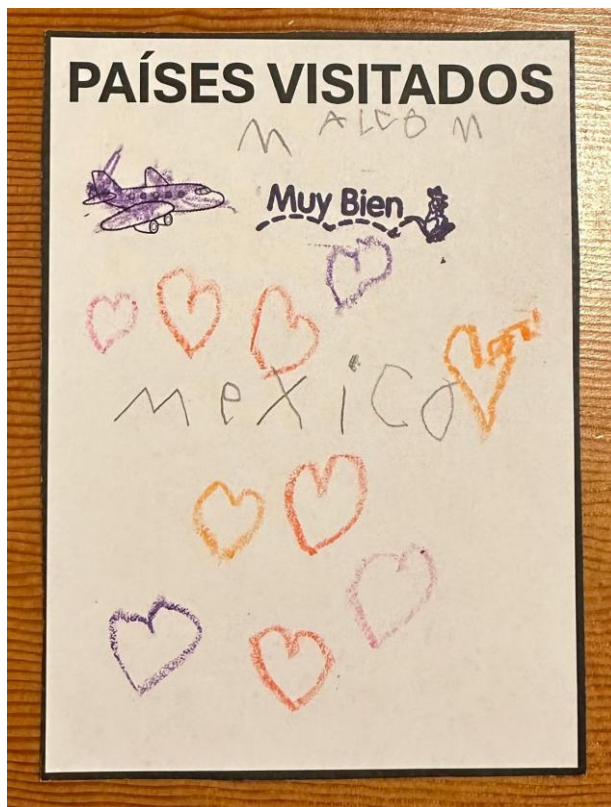 PAÍSES VISITADOS
MALCOM
Muy Bien
mexico